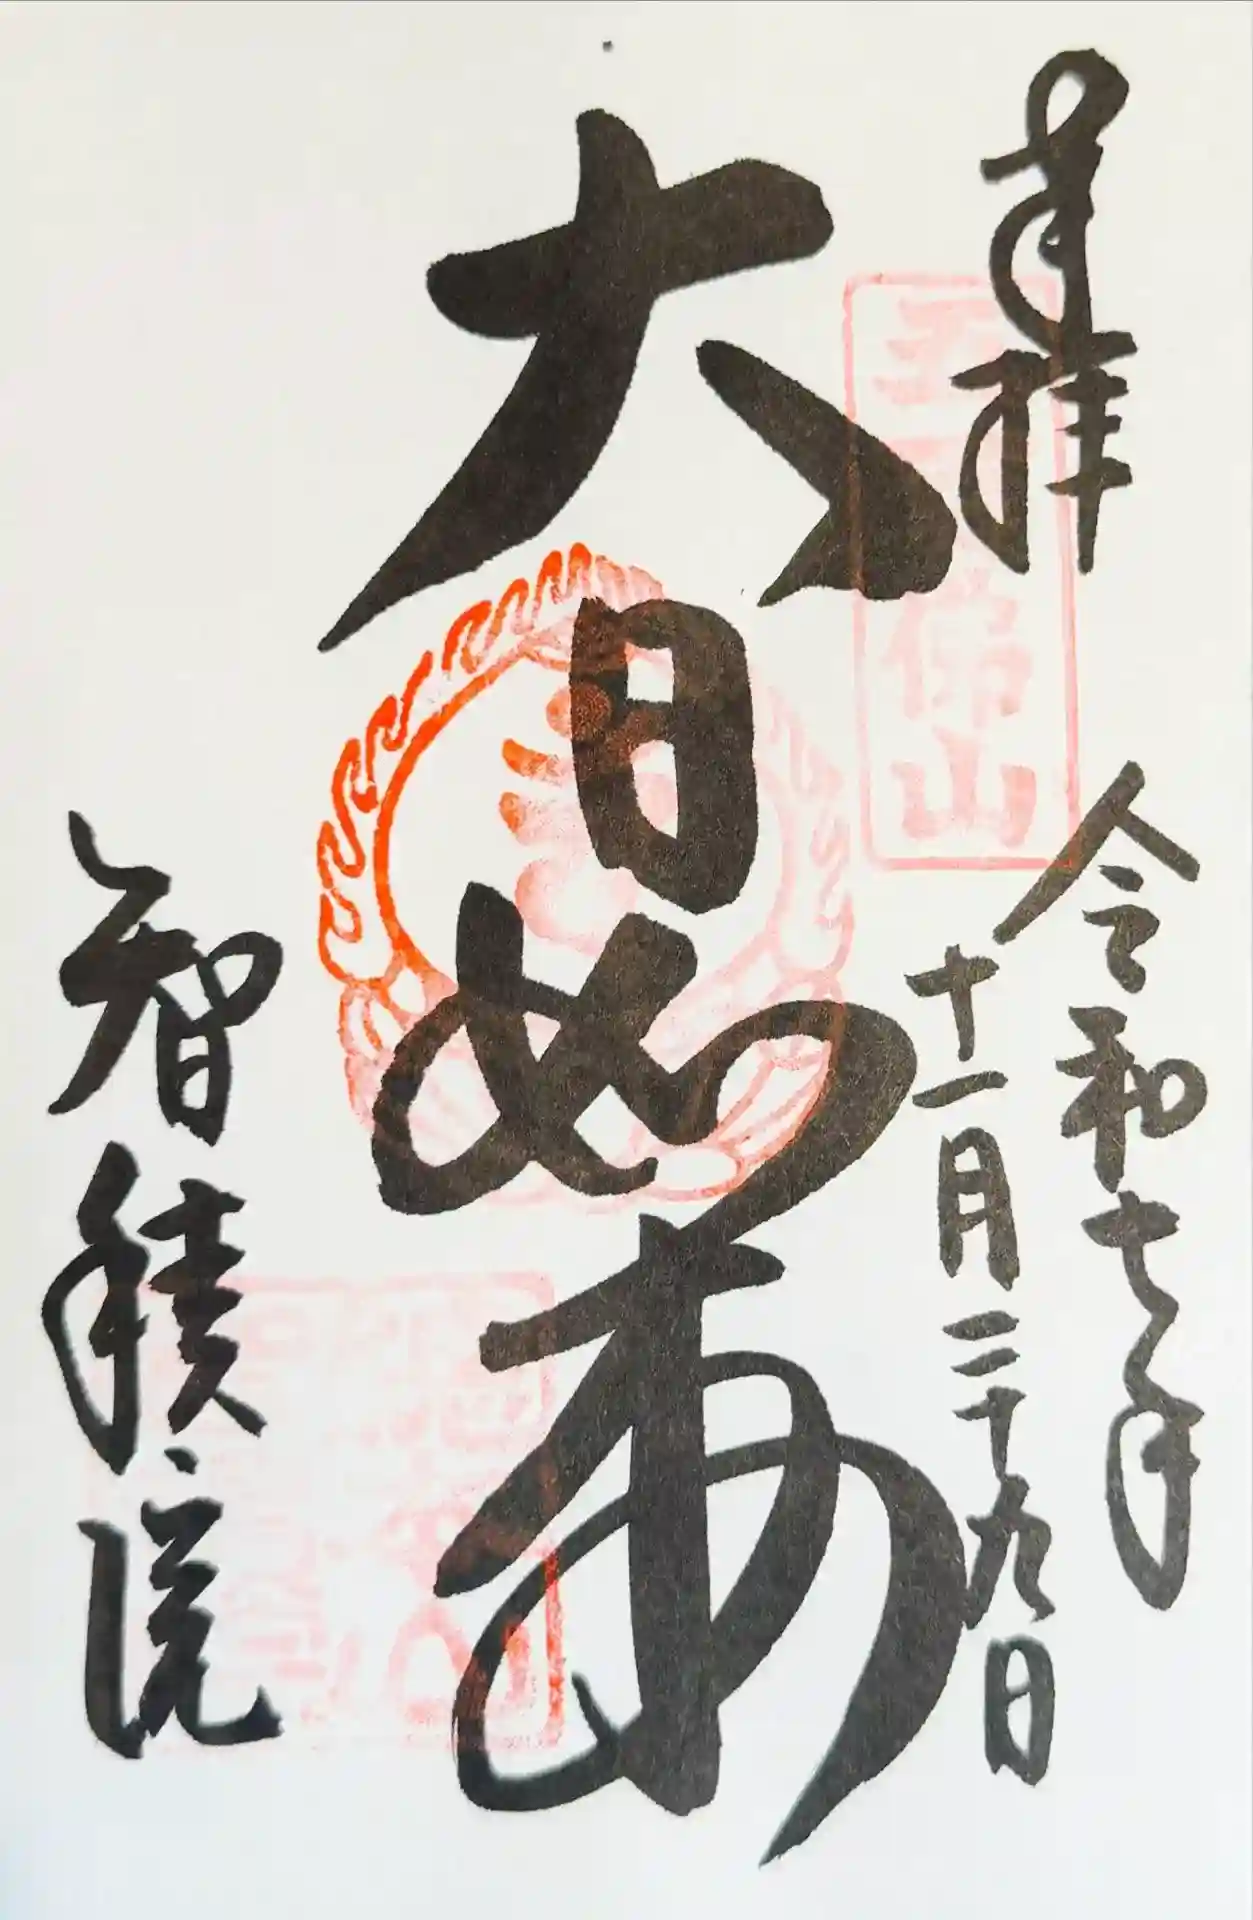 奉拝
五百佛山
令和七年
十一月二十九日
大日如来
智積院